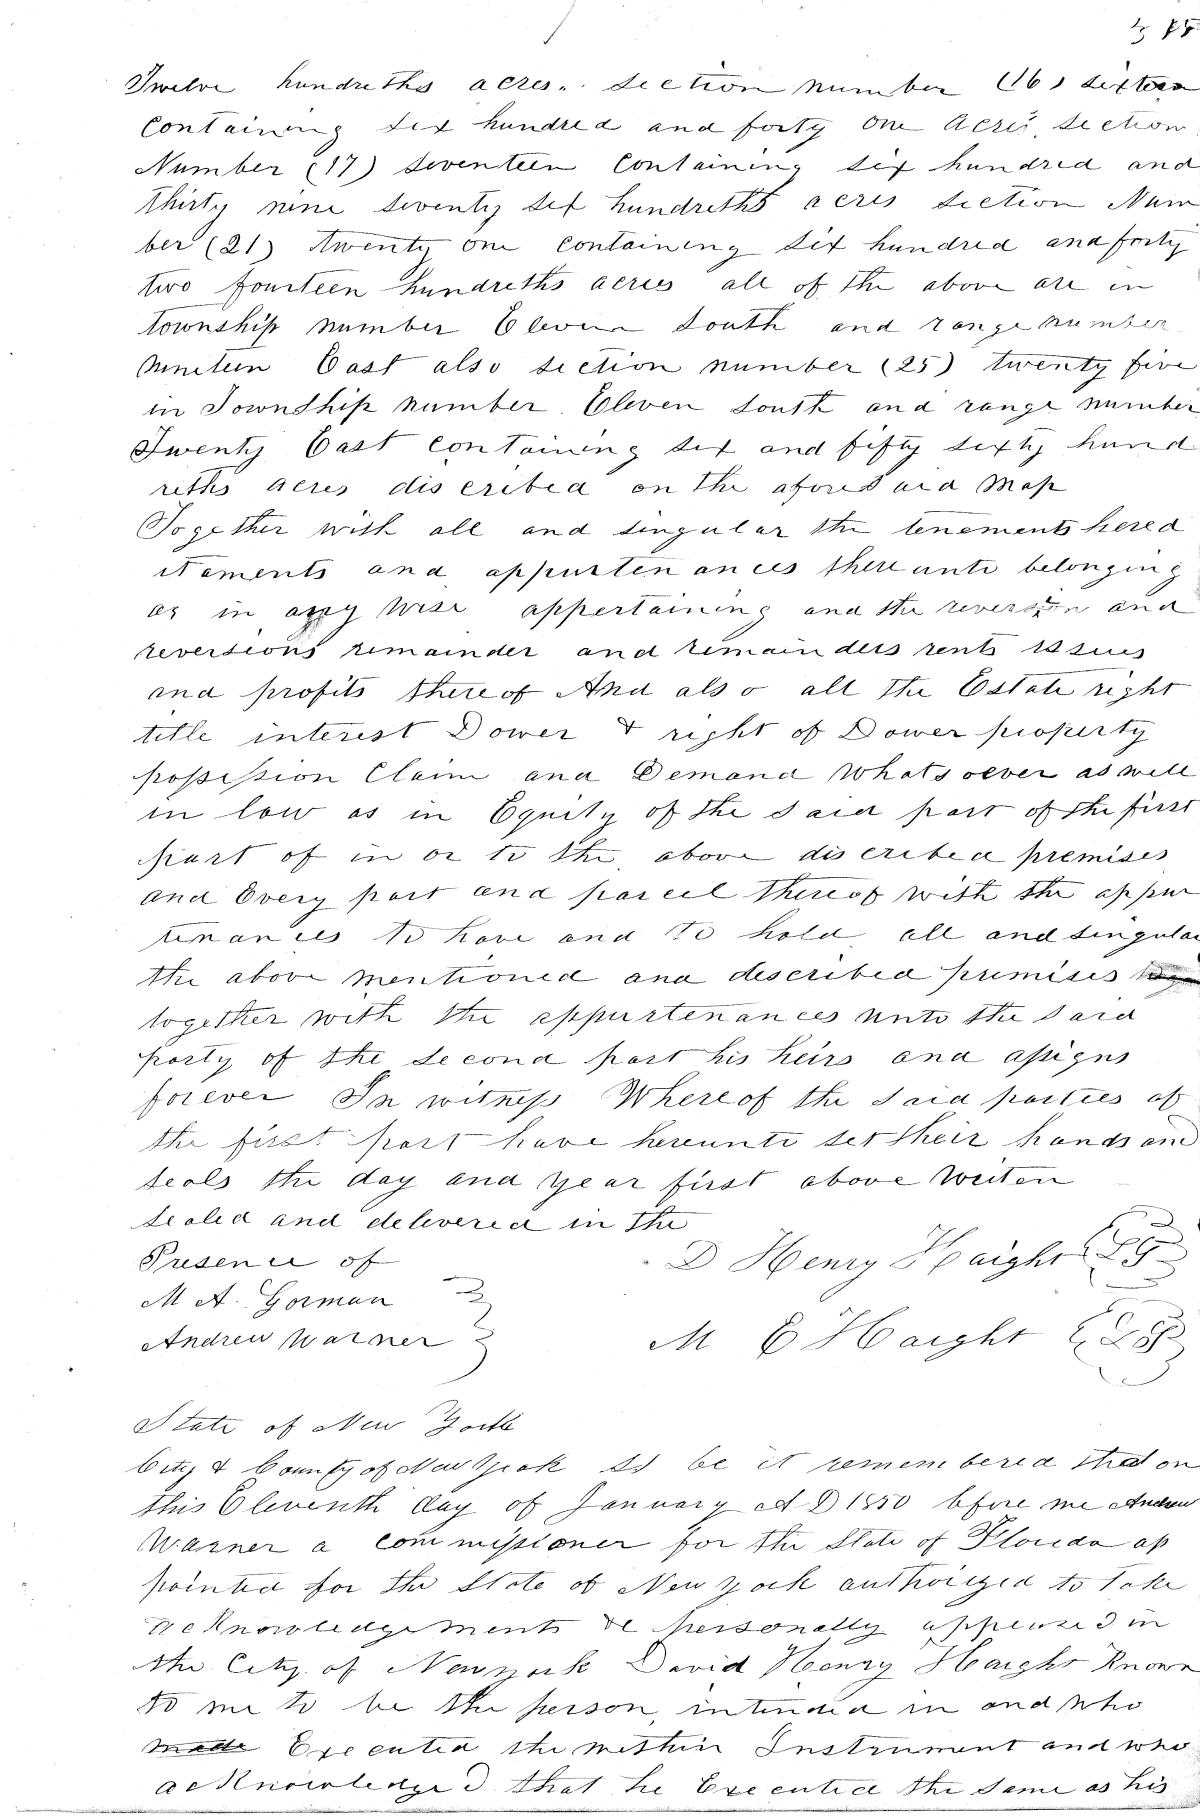 Twelve hundreths acres. section number (16) sixteen
containing six hundred and forty one acres section
Number (17) seventeen containing six hundred and
thirty nine seventy six hundreths acres section Num
ber (21) twenty one containing six hundred and forty
two fourteen hundreths acres all of the above are in
township number Eleven south and range number
nineteen East also section number (25) twenty five
in Township number Eleven south and range number
Twenty East containing six and fifty sixty hund
reths acres discribed on the aforesaid Map
Together with all and singular the tenements hered
itaments and appurtenances thereunto belonging
as in any wise appertaining and the reversion and
reversions remainder and remainders rents issues
and profits thereof And also all the Estate right
title interest Dower & right of Dower property
possession Claim and Demand whatsoever as well
in law as in Equity of the said part of the first
part of in or to the above discribed premises
and Every part and parcel thereof with the appur
tenances to have and to hold all and singular
the above mentioned and described premises
together with the appurtenances unto the said
party of the second part his heirs and assigns
forever In witness Whereof the said parties of
the first part have hereunto set their hands and
seals the day and year first above writen
sealed and delivered in the
Presence of
D Henry Haight LS
M A. Gorman
Andrew Warner
M E Haight LS
State of New York
City & County of New York SS be it remembered that on
this Eleventh day of January A D 1850 bfore me Andrew
Warner a commissioner for the State of Florida ap
pointed for the State of New York authorized to take
acknowledgements &c personally appeared in
the City of New york David Henry Haight Known
to me to be the person intended in and who
made Executed the within Instrument and who
acknowledged that he Executed the same as his